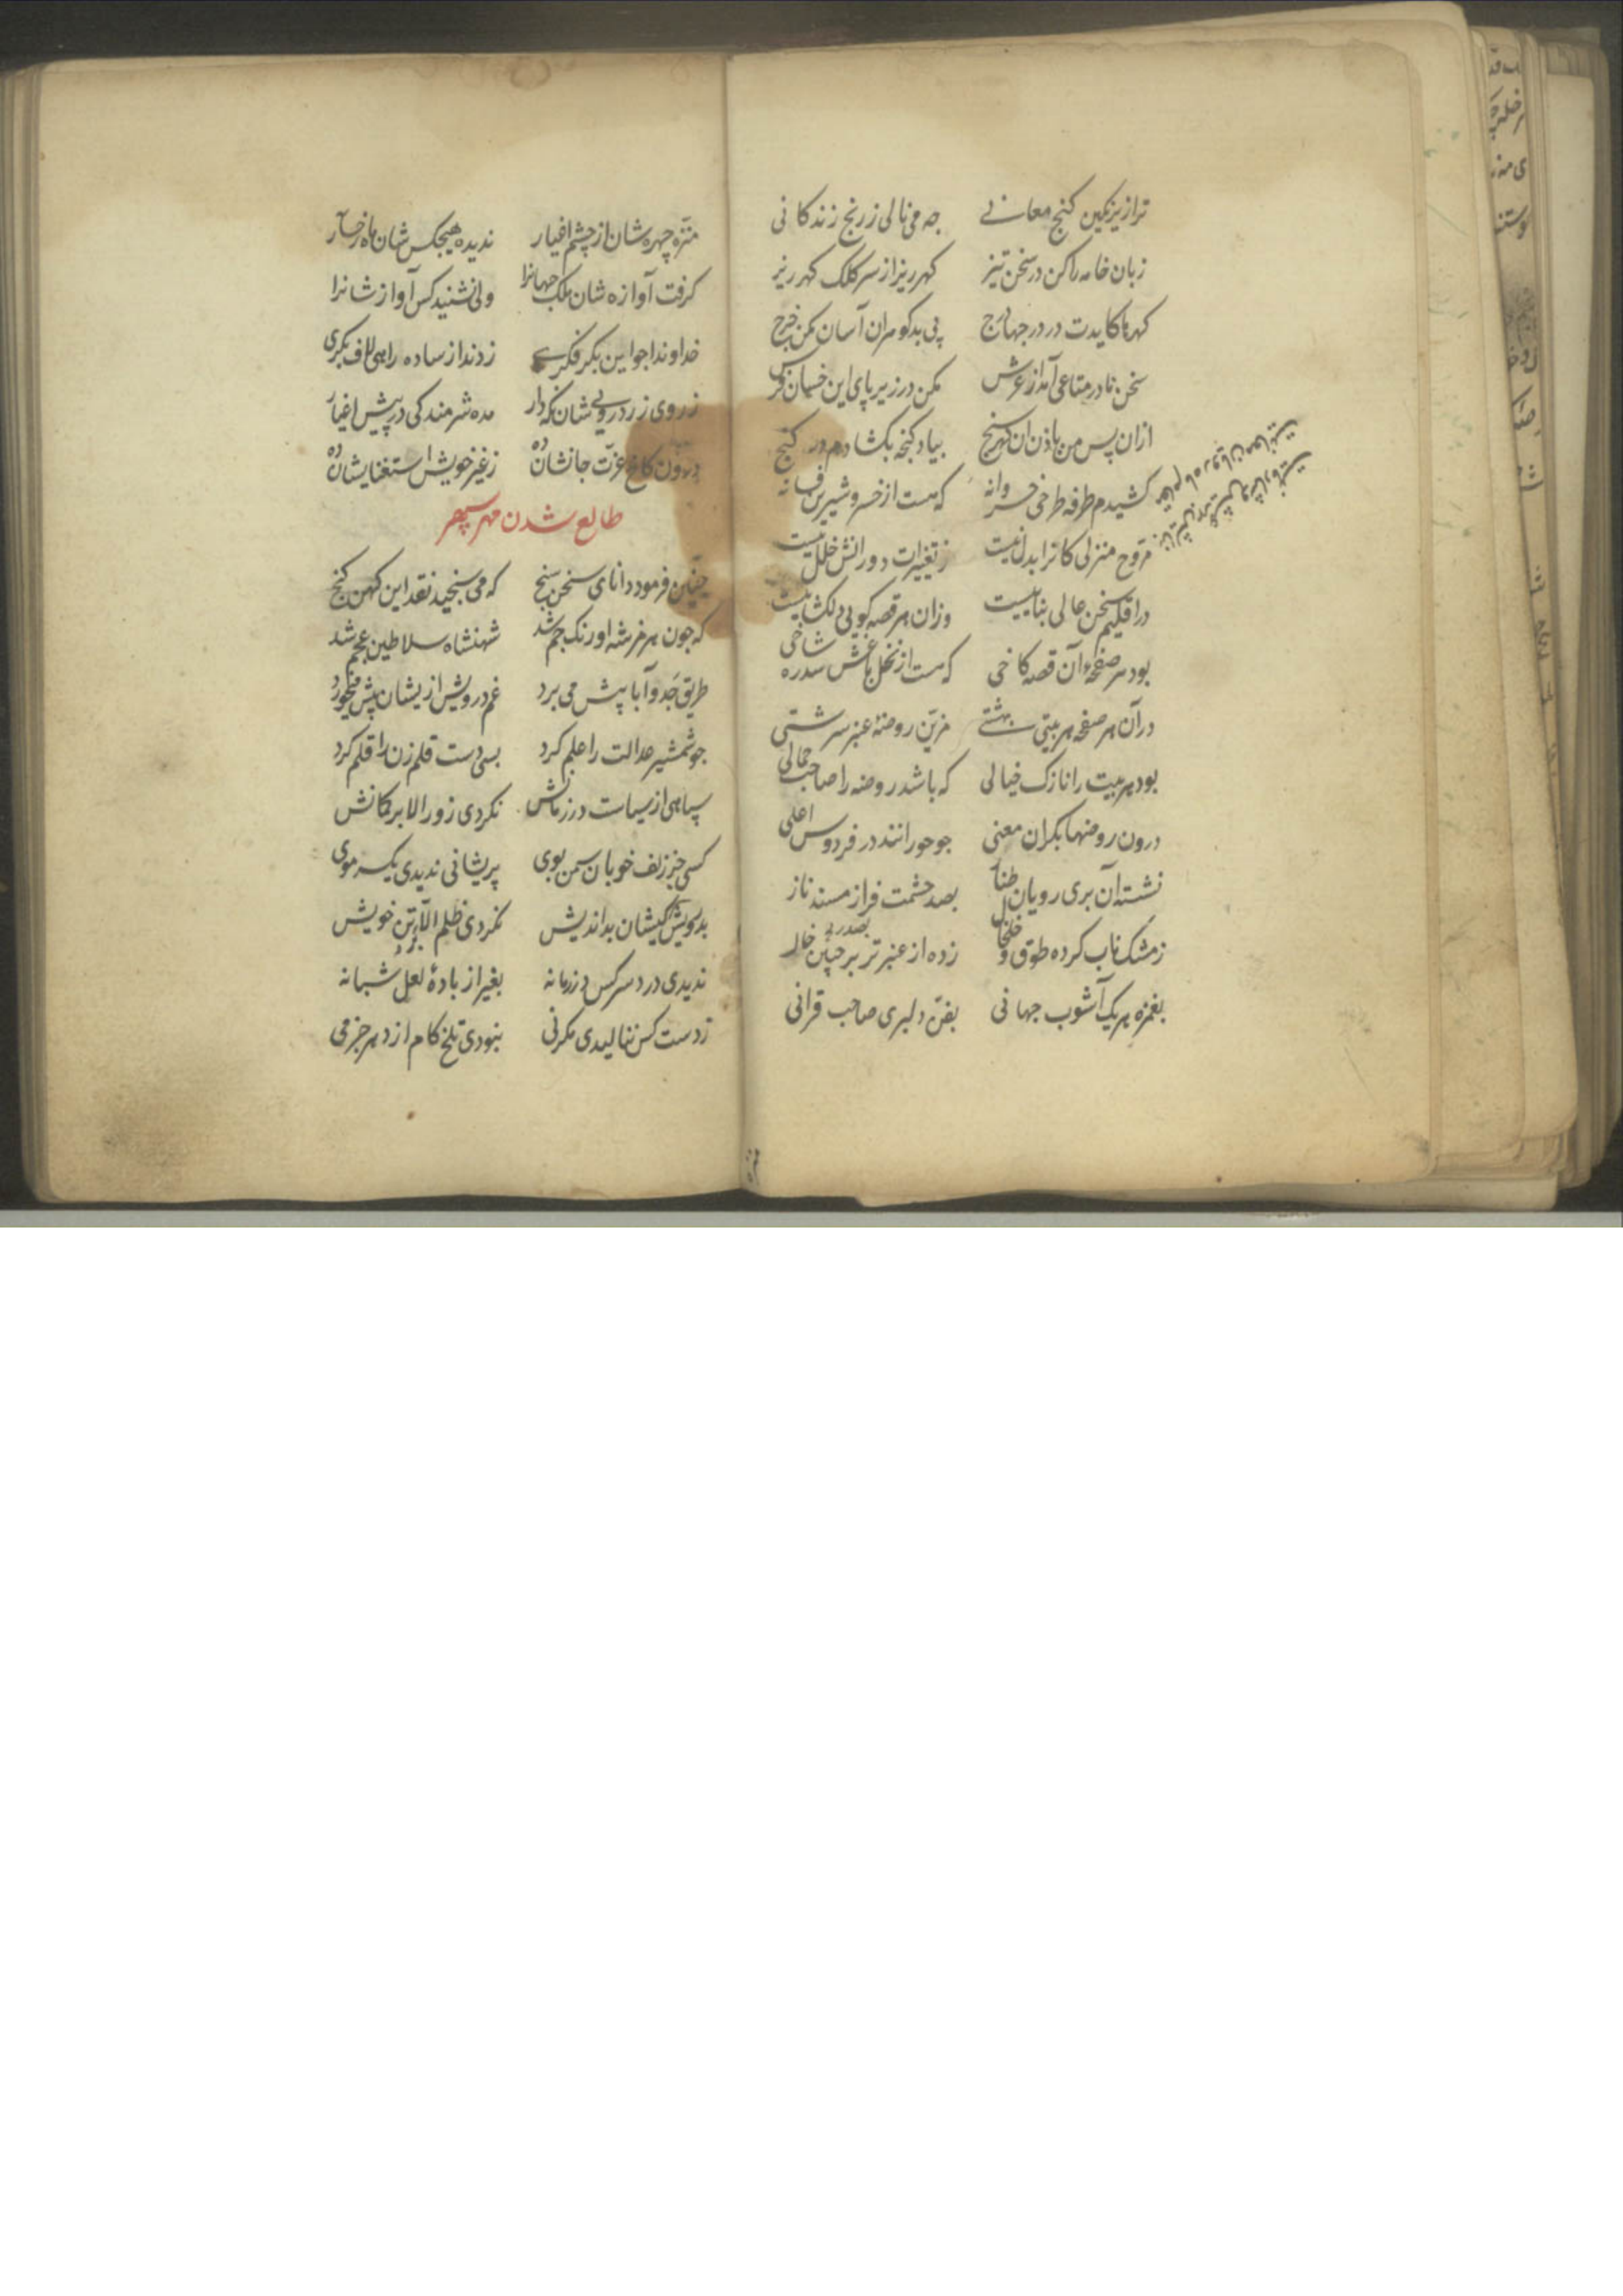 ترا زیر نکین کنج معانی جه می نالی ز رنج زندکانی
زبان خامه را کن در سخن تیز کهر ریز از سر کلک کهر ریز
کهرها کایدت در درج پی بد کوهران آسان مکن خرج
سخن نادر متاعی آمد از عرش مکن در زیر پای این خسان فرش
ازان پس من باذن ان کهر سنج بیاد کنجه بکشادم در کنج
کشیدم طرفه طرحی خسروانه که هست از خسرو شیرین فسانه
مروح منزلی کانرا بدل نیست ز تغییرات دورانش خلل نیست
در اقلیم سخن عالی بناییست وزان هر قصه کویی دلکشاییست
بود هر صفحهٔ آن قصه کاخی که هست از نخل باغش سدره شاخی
در آن هر صفحه هر بیتی بهشتی مزین روضهٔ عنبر سرشتی
بود هر بیت را نازک خیالی که باشد روضه را صاحب جمالی
درون روضها بکران معنی جو حورانند در فردوس اعلی
نشسته آن بری رویان طناز بصد حشمت فراز مسند ناز
ز مشک ناب کرده طوق و خلخال زده از عنبر تر بر جبین خال
بغمزه هر یک آشوب جهانی بفن دلبری صاحب قرانی
منزه چهره شان از چشم اغیار ندیده هیجکس شان ماه رخسار
کرفت آوازه شان ملک جهانرا ولی نشنید کس آواز شانرا
خداوندا جو این بکر فکری زدند از ساده راهی لاف بکری
ز روی زرد رویی شان نکه دار مده شرمندکی در پیش اغیار
درون کاخ عزت جانشان ده ز غیر خویش استغنایشان ده
طالع شدن مهر سپهر
چنین فرمود دانای سخن سنج که می سنجید نقد این کهن کنج
که جون هرمز شه اورنک جم شد شهنشاه سلاطین عجم شد
طریق جد و آبا پیش می برد غم درویش ازیشان پیش میخورد
جو شمشیر عدالت را علم کرد بسی دست قلم زن را قلم کرد
سپاهی از سیاست در زمانش نکردی زور الا بر کمانش
کسی جز زلف خوبان سمن بوی پریشانی ندیدی یکسر موی
بدرویش کیشان بد اندیش نکردی ظلم الا بر تن خویش
ندیدی درد سر کس در زمانه بغیر از بادهٔ لعل شبانه
ز دست کس ننالیدی مکر نی نبودی تلخ کام از دهر جز می